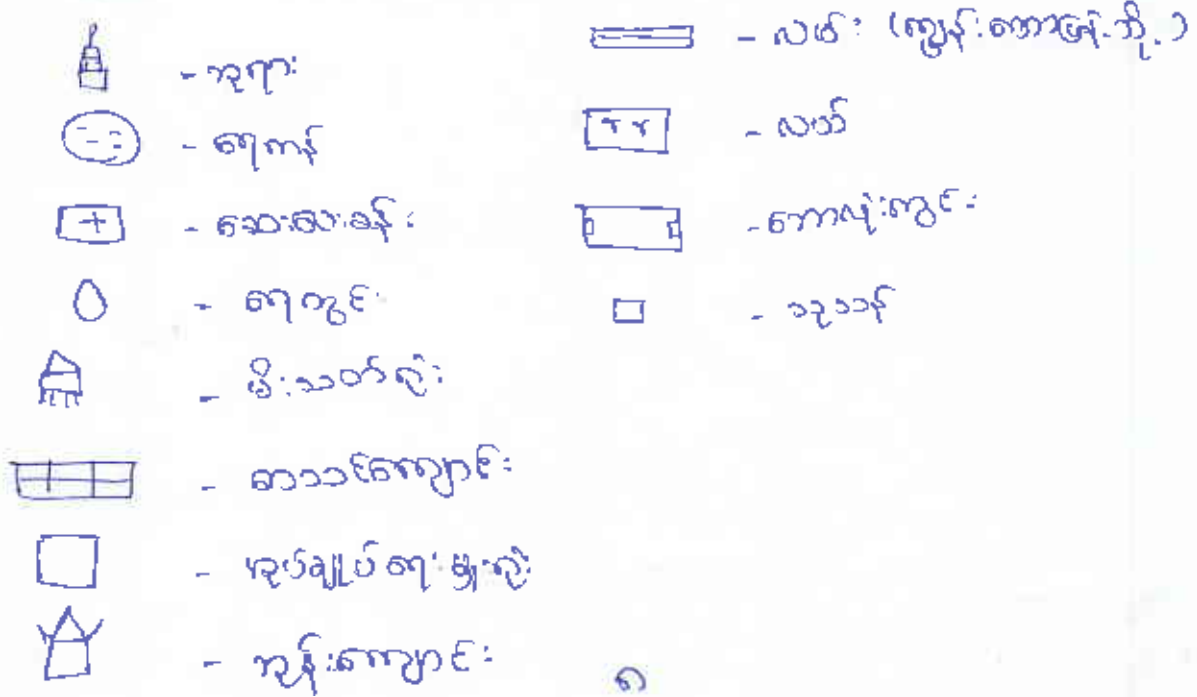 - ဘုရား
- ရေကန်
- ဆေးပေးခန်း
- ရေတွင်း
- မီးသတ်ရုံး
- စာသင်ကျောင်း
- အုပ်ချုပ်ရေးမှူးရုံး
- ဘုန်းကျောင်း
- လမ်း
- လယ်
- ဘောလုံးကွင်း
- သုသာန်